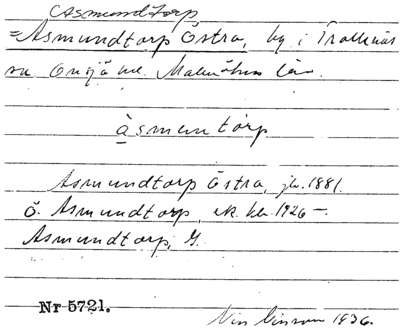 Asmundtorp
=Asmundtorp Östra, by i Trollenäs
sn Onsjö hd. Malmöhus län.
àsmuntórp
Asmundtorp Östra, jb. 1881.
Ö. Asmundtorp, ek. kb. 1926–.
Asmundtorp, G.
Nr 5721.
1936.